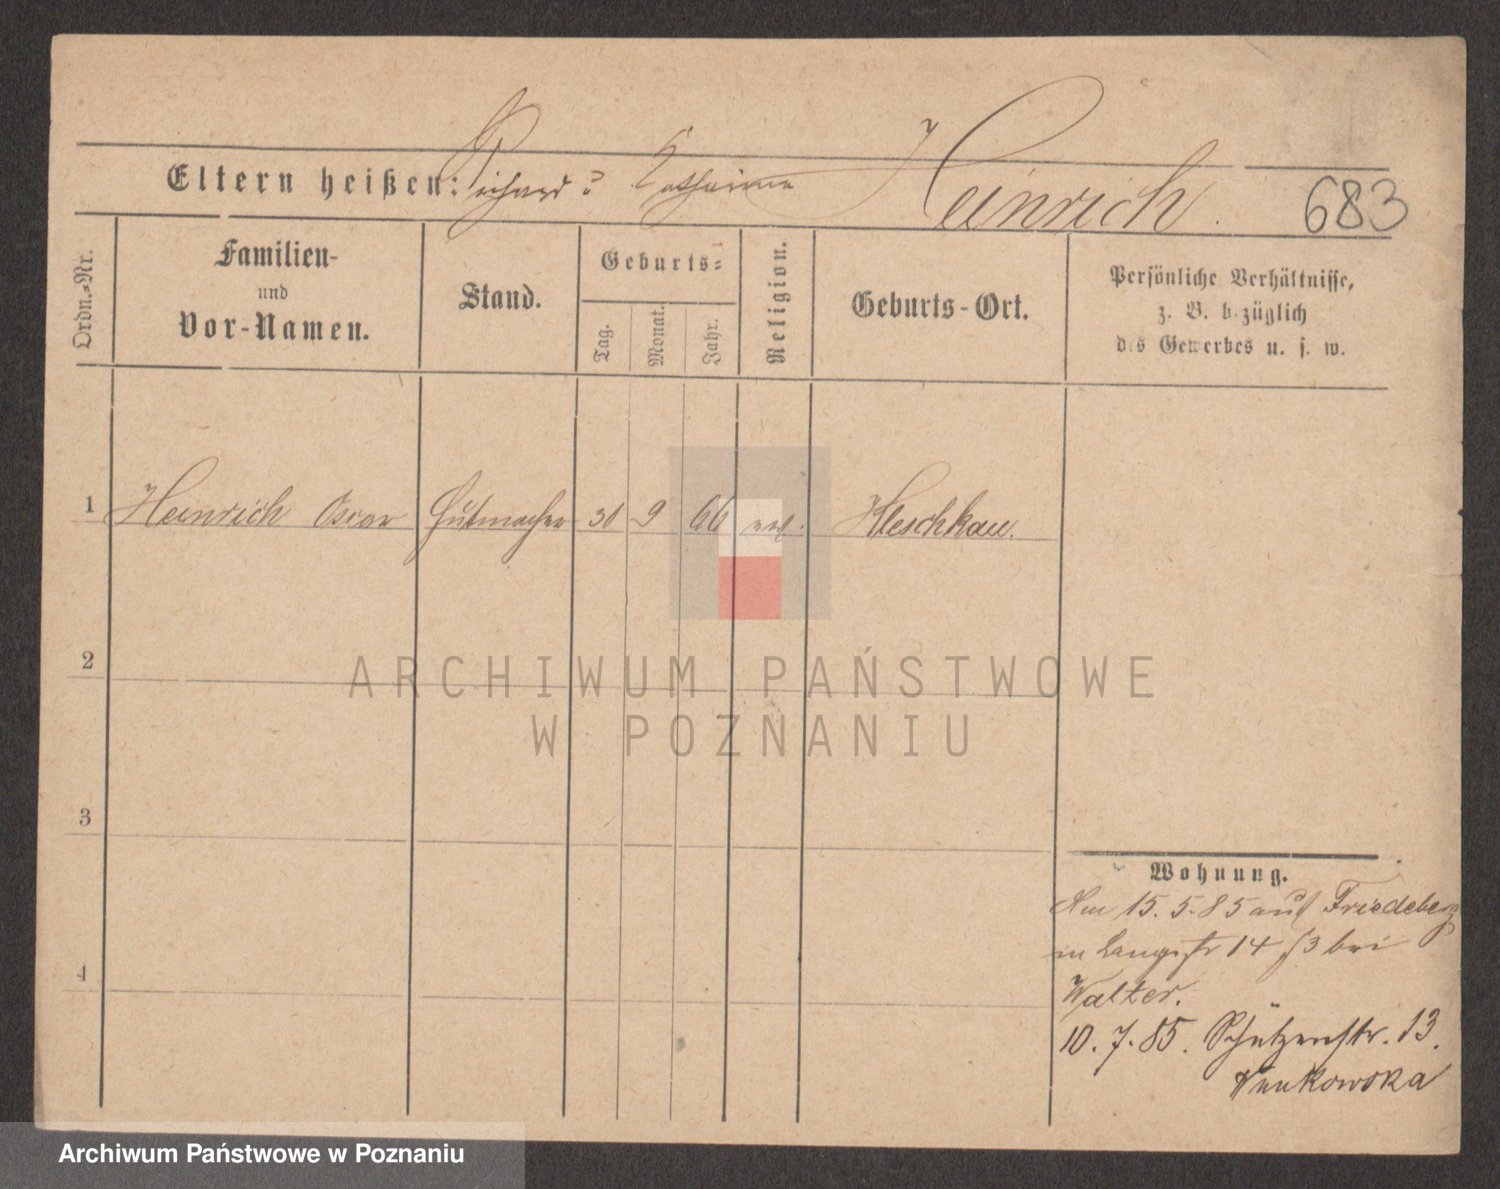 Eltern heißen: Richard u Katharina Heinrich. 683
Ordn.-Nr.
Familien-
und
Vor-Namen.
Stand.
Geburts-
Tag.
Monat.
Jahr.
Religion.
Geburts-Ort.
Persönliche Verhältnisse,
z. B. bezüglich
des Gewerbes u. s. w.
1 Heinrich Oscar Hutmacher 30 9 66 ev. Kleschkau.
2
3
4
ARCHIWUM PAŃSTWOWE
W POZNANIU
Wohnung.
Am 15. 5. 85 aus Friedeberg
in Langestr 14 bei
Walter.
10. 7. 85. Schützenstr. 13.
Archiwum Państwowe w Poznaniu